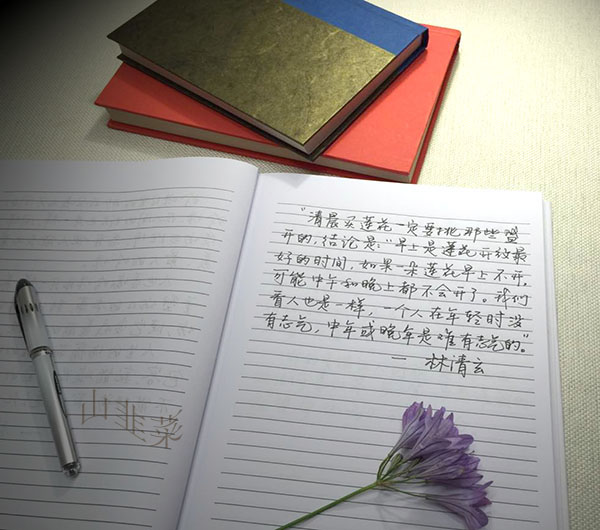 "清晨买莲花一定要挑那些盛
开的,结论是:"早上是莲花开放最
好的时间,如果一朵莲花早上不开,
可能中午和晚上都不会开了。我们
看人也是一样,一个人在年轻时没
有志气,中年或晚年是难有志气的。"
— 林清玄
山韭菜